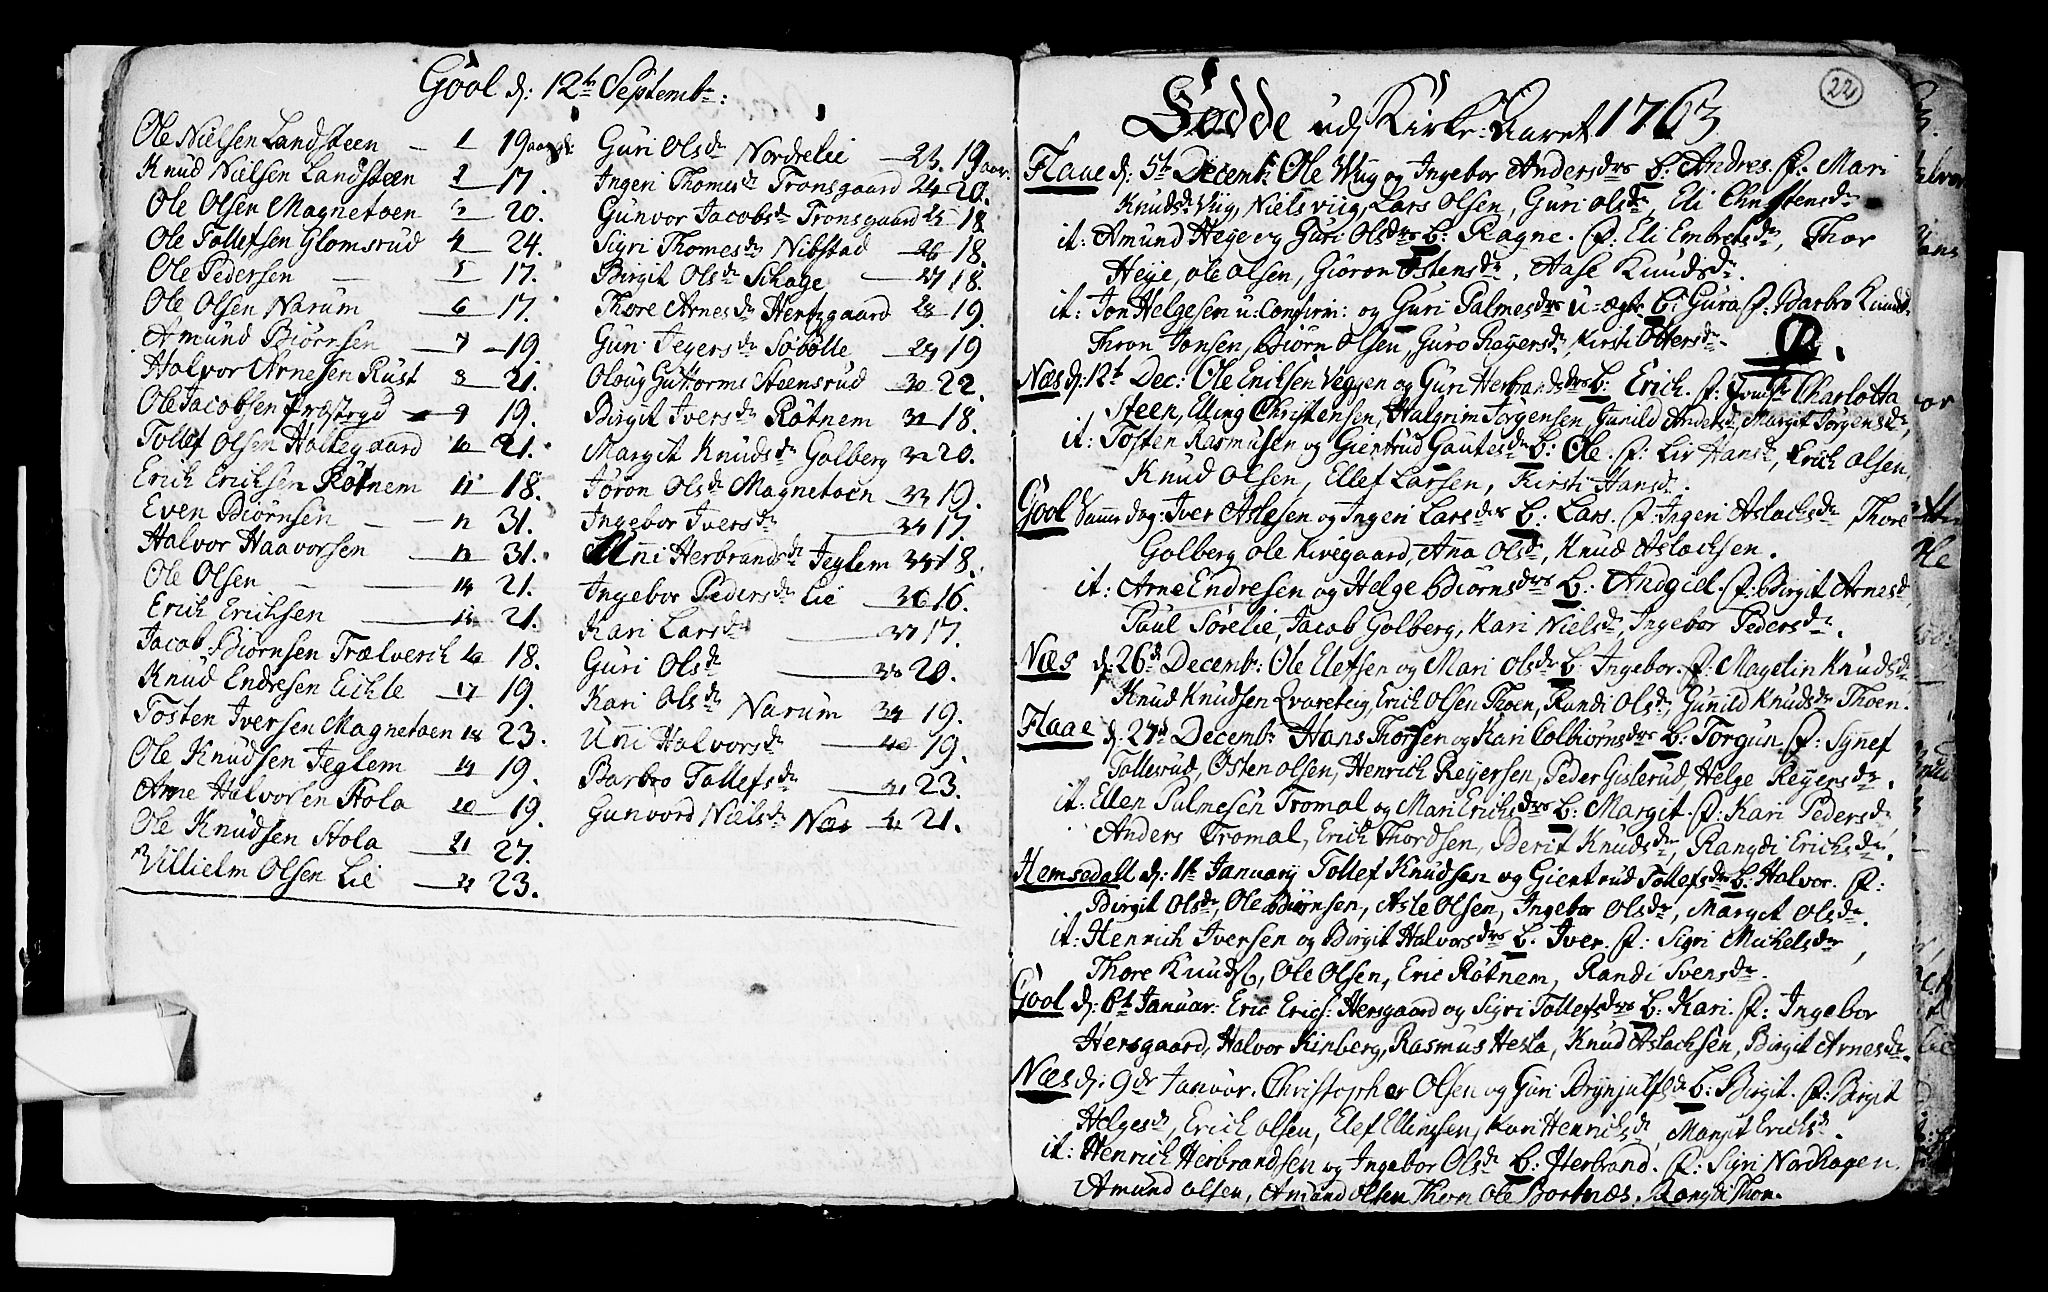 Gool d: 12te Septembr:
Ole Nielsen Landsteen — 1 19 aar gl:
Knud Nielsen Landsteen 2 17.
Ole Olsen Magnetoen 3 20.
Ole Tollefsen Glomsrud 4 24.
Ole Pedersen — 5 17.
Ole Olsen Narum 6 17.
Amund Biörnsen — 7 19.
Halvor Arnesen Rust 8 21.
Ole Jacobsen Præstryd 9 19.
Tollef Olsen Haltegaard 10 21.
Erich Erichsen Røtnem 11 18.
Even Biörnsen — 12 31.
Halvor Haavorsen — 13 31.
Ole Olsen — 14 21.
Erich Erichsen — 15 21.
Jacob Biörnsen Trælverch 16 18.
Knud Endresen Eichle 17 19.
Tosten Iversen Magnetoen 18 23.
Ole Knudsen Jeglem 19 19.
Arne Halvorsen Hola 20 19.
Ole Knudsen Hola 21 27.
Villielm Olsen Lie 22 23.
Guri Olsdr Nordrelie — 23. 19 aar.
Ingeri Thomesdr Tronsgaard 24 20.
Gunvor Jacobsdr Tronsgaard 25 18
Sigri Thomesdr Nibstad 26 18.
Birgit Olsdr Schage 27 18.
Thore Arnesdr Hertzgaard 28 19.
Guri Jegersdr Søbølle 29 19
Oloug Guttorms Steensrud 30 22.
Birgit Iversdr Røtnem 31 18.
Margit Knudsdr Golberg 32 20.
Jöron Olsdr Magnetoen 33 19.
Ingebor Iversdr 34 17.
Unni Herbrandsdr Jeglem 35 18.
Ingebor Pedersdr Lie 36 16.
Kari Larsdr — 37 17.
Guri Olsdr — 38 20.
Kari Olsdr Narum 39 19.
Uni Halvorsdr — 40 19.
Barbro Tollefsdr — 41 23.
Gunvord Nielsdr Næs 42 21.
22
Födde udj Kirke-Aaret 1763
Flaae d: 5te Decembr Ole Wug og Ingebor Andersdrs b: Andres. f: Mari
Knudsdr Viig, Niels viig, Lars Olsen, Guri Olsdr, Eli Christensdr
it: Amund Heye og Guri Olsdrs b: Ragne. f: Eli Embretsdr, Thor
Heye, ole olsen, Giöron Østensdr, Aase Knudsdr.
it: Jon Helgesen u: Confirm: og Guri Palmesdrs u-ægte b: Gura f: Barbro Knudsd.
Thron Jonsen, Biörn Olsen, Guro Reyersdr, Kirsti Ottersdr.
Næs d: 12te Dec: Ole Erichsen Veggen og Guri Herbrandsdrs b: Erich. f: Charlotta
Steen, Elling Christensen, Halgrim Jörgensen, Gunild Andersdr, Margit Jörgensdr,
it: Tosten Rasmusen og Giertrud Gautesdr b: Ole. f: Liv Hansdr, Erich olsen,
Knud Olsen, Ellef Larsen, Kirsti Hansdr.
Gool Samme dag: Iver Aslesen og Ingeri Larsdrs b: Lars. f: Ingeri Aslachsdr Thore
Golberg ole Kirkegaard, Anna Olsdr, Knud Aslachsen.
it: Arne Endresen og Helge Biörnsdrs b: Andgiel. f: Birgit Arnesd,
Paul Sørelie, Jacob Golberg, Kari Nielsdr, Ingebor Pedersdr.
Næs d: 26de Decembr: Ole Elefsen og Mari olsdr b: Ingebor. f: Magelin Knudsdr
Knud Knudsen Qvareteig, Erich Olsen Thoen, Randi Olsdr, Gunild Knudsdr Thoen.
Flaae d: 27de Decembr Hans Thorsen og Kari Colbiörnsdrs b: Torgun. f: Synef
Tollesrud, Östen olsen, Henrich Reyersen, Peder Gislerud, Helge Reyersdr.
it: Ellen Palmesen Tromal og Mari Erichsdrs b: Margit. f: Kari Pedersdr,
Anders Tromal, Erich Thordsen, Berit Knudsdr, Rangdi Erichsdr.
Hemsedall d: 1te Januarij Tollef Knudsen og Giertrud Tollefsdrs b: Halvor. f:
Birgit Olsdr, Ole Biörnsen, Asle Olsen, Ingebor Olsdr, Margit olsdr.
it: Henrich Iversen og Birgit Halvorsdrs b. Iver. f: Sigri Michelsdr,
Thore Knuds, Ole Olsen, Eric Røtnem, Randi Svensdr.
Gool d: 6te Januar: Eric Erics: Hersgaard og Sigri Tollefsdrs b: Kari. f: Ingebor
Hersgaard, Halvor Kinberg, Rasmus Hesla, Knud Aslachsen, Birgit Arnesdr.
Næs d: 9de Januar. Christopher Olsen og Guri Brynjulfsdr b: Birgit. f: Birgit
Helgesdr, Erich olsen, Elef Ellingsen, Kari Henrichsdr, Margit Erichsdr.
it: Henrich Herbrandsen og Ingebor Olsdr b: Herbrand. f: Sigri Nordhagen.
Amund olsen, Amund olsen Thorn Ole Bortnæs, Rangdi Thon.